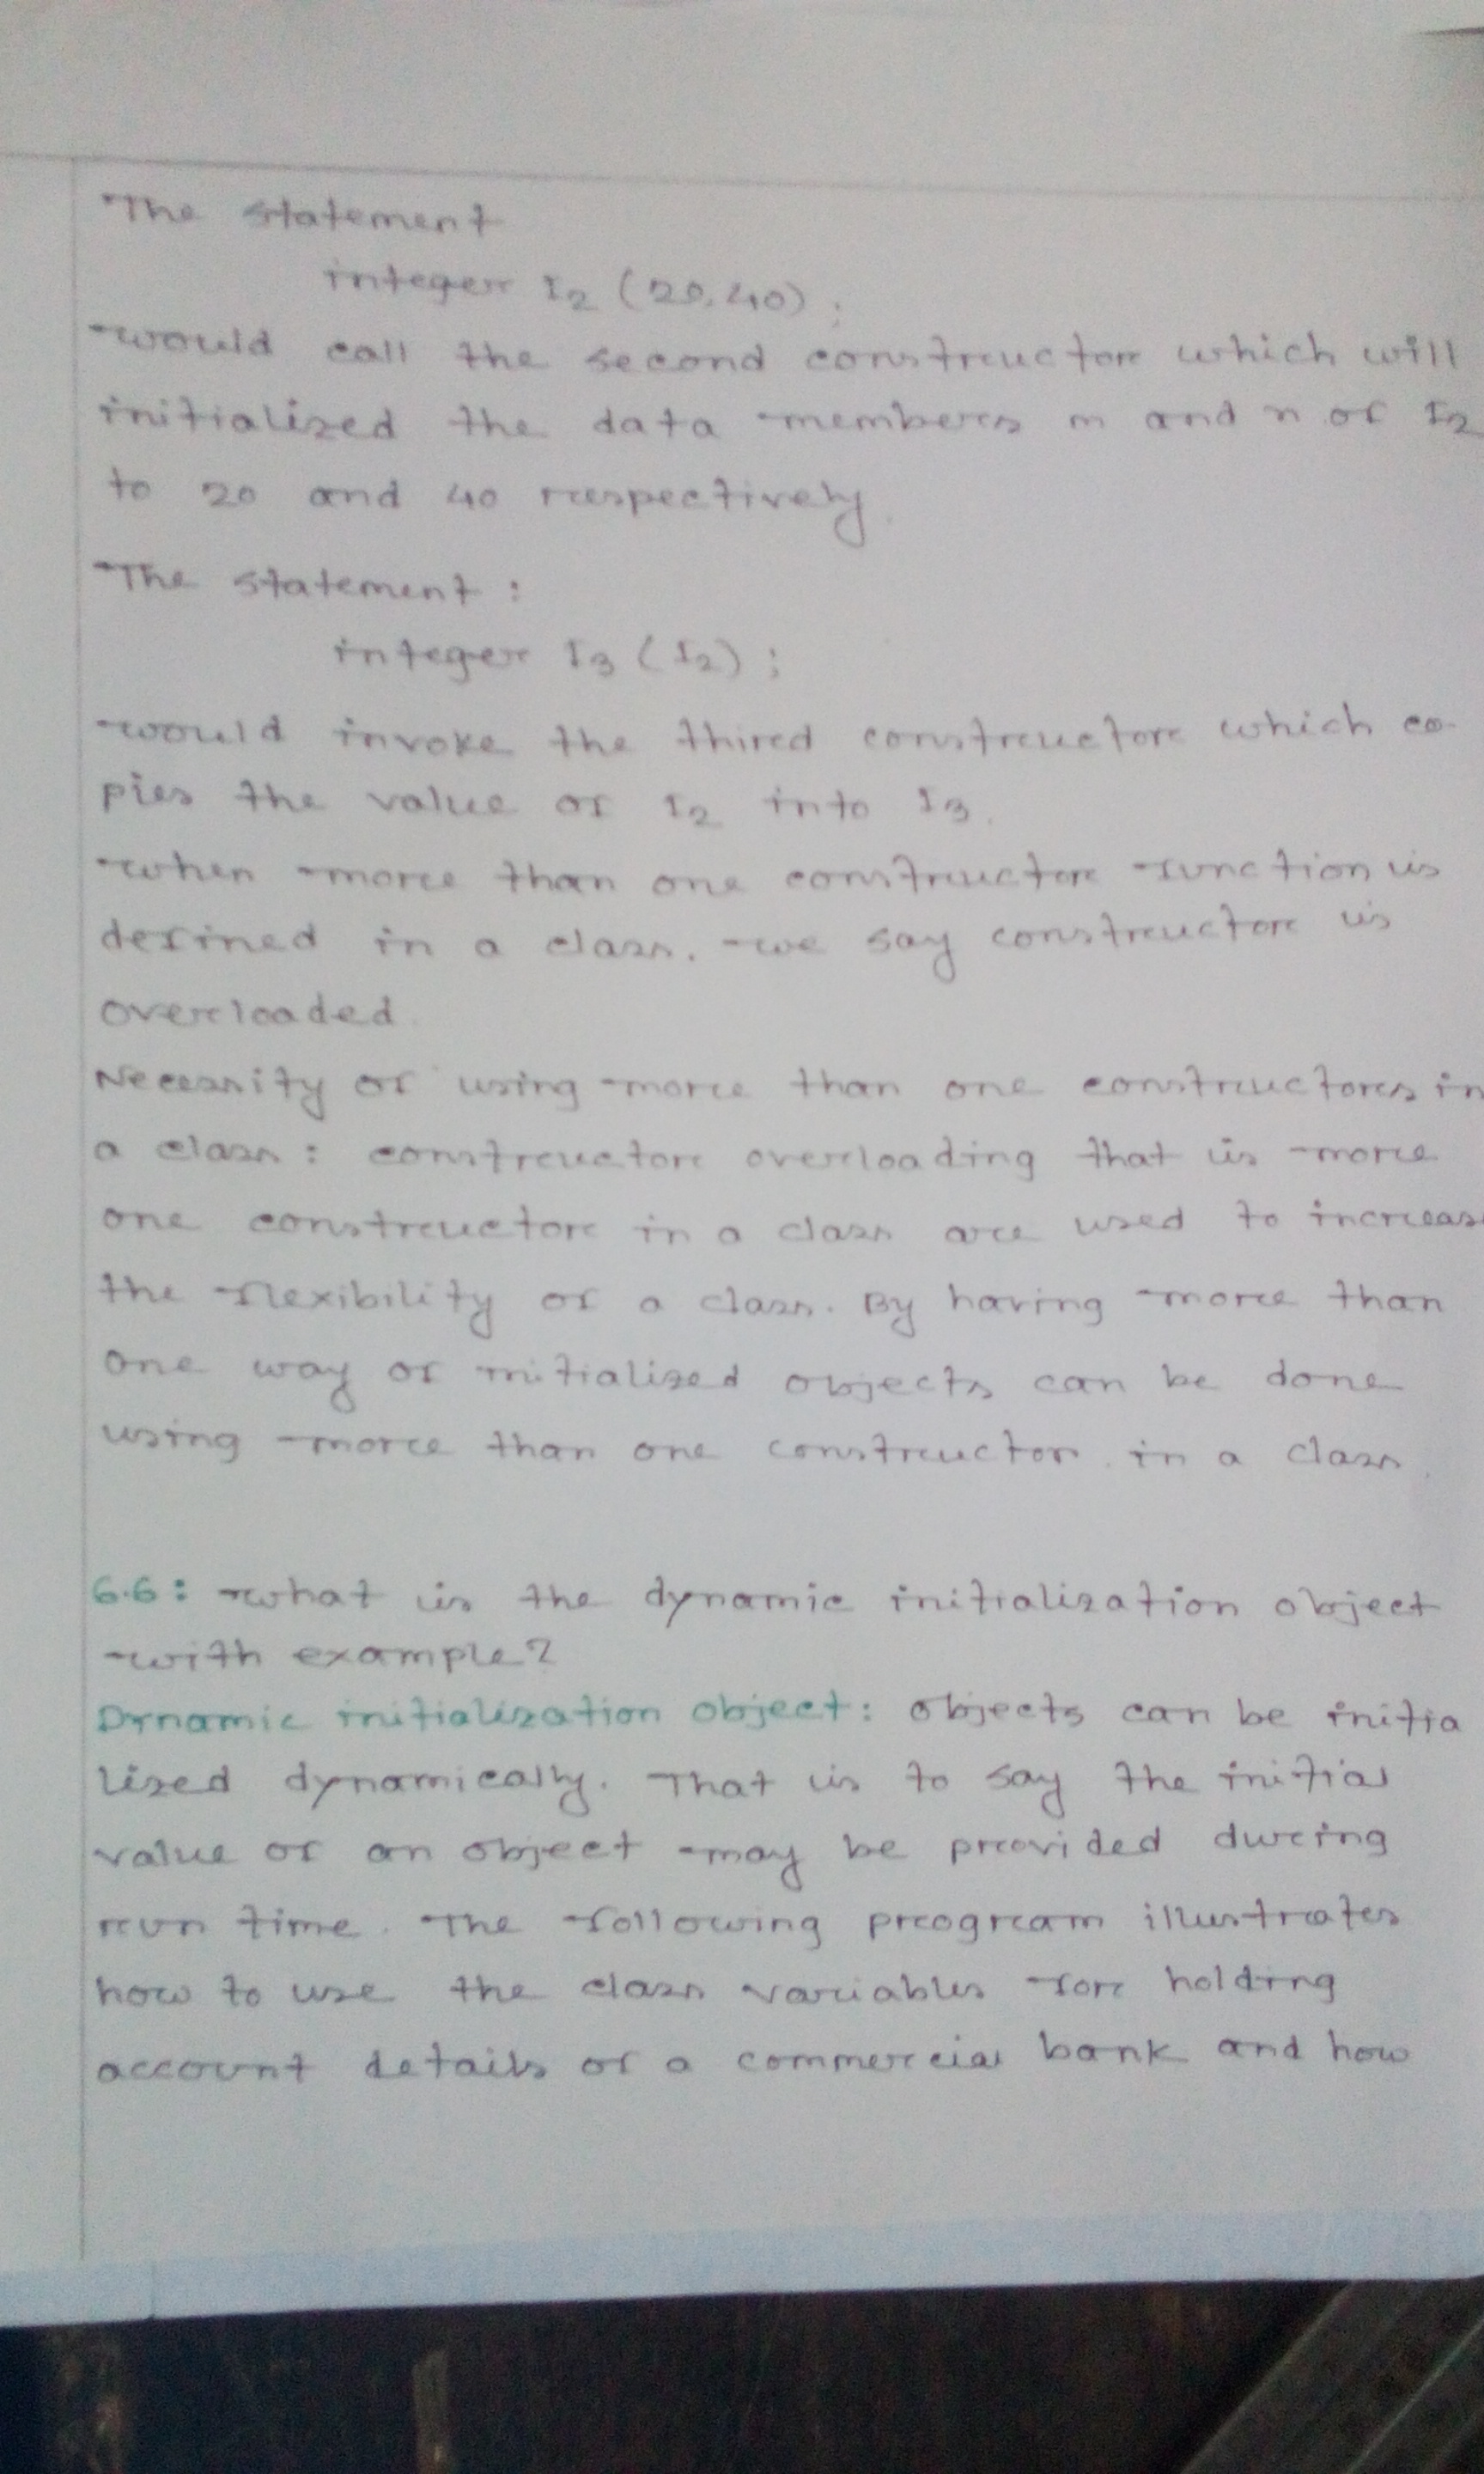 The statement
integer I2 (20,40);
would call the second constructor which will
initialized the data members m and n of I2
to 20 and 40 respectively.
The statement :
integer I3 (I2) ;
would invoke the third constructor which co-
pies the value of I2 into I3.
when more than one constructor function is
defined in a class. we say constructor is
overloaded.
Necessity of using more than one constructors in
a class : constructor overloading that is more
one constructor in a class are used to increas
the flexibility of a class. By having more than
one way of initialized objects can be done
using more than one constructor in a class.
6.6: what is the dynamic initialization object
with example?
Dynamic initialization object: objects can be initia
lized dynamically. That is to say the initial
value of an object may be provided during
run time. The following program illustrates
how to use the class variables for holding
account details of a commercial bank and how